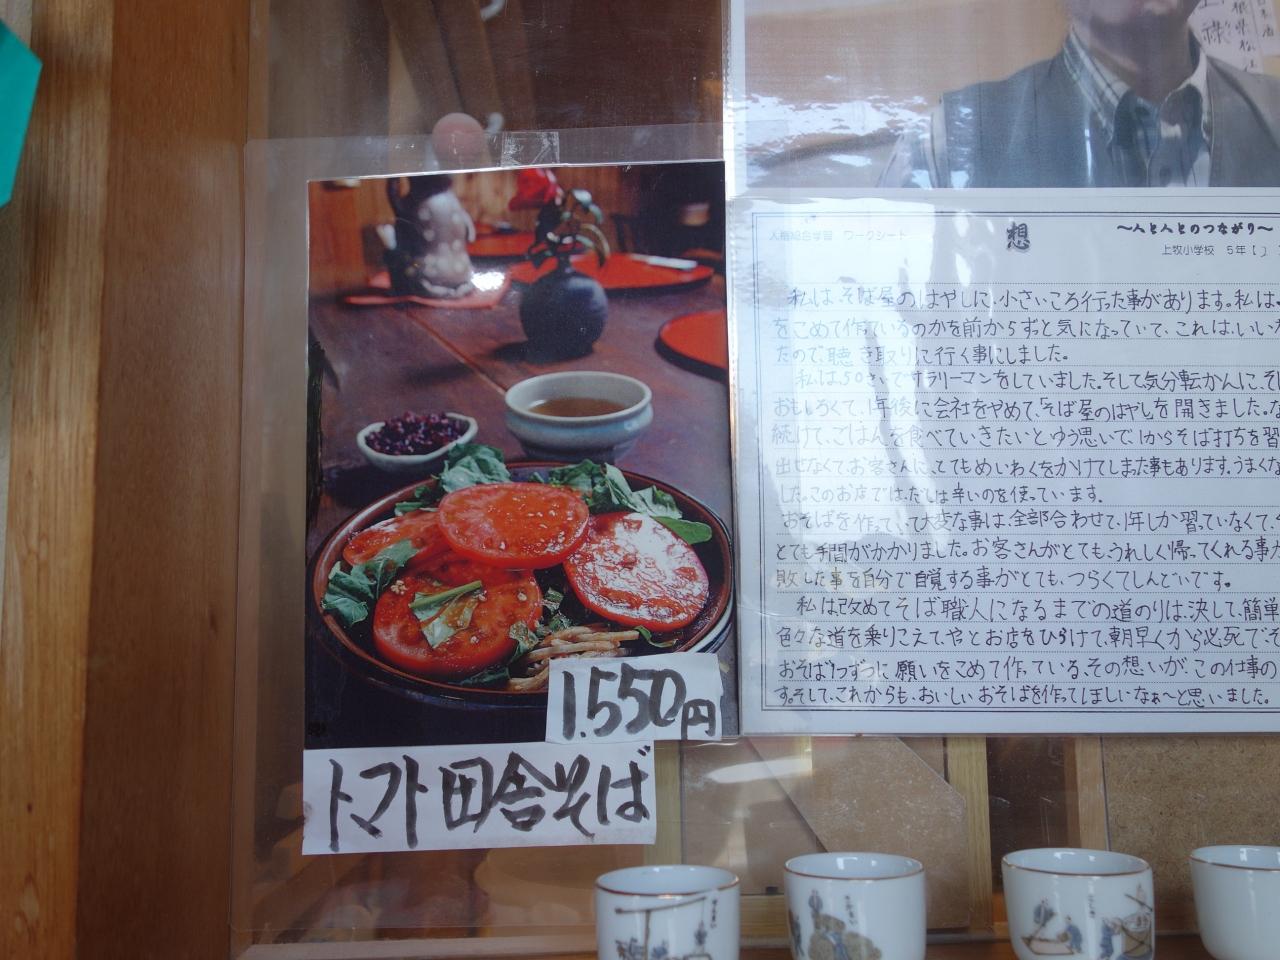 1.550円
トマト田舎そば
人権総合学習 ワークシート
想
～人と人とのつながり～
上牧小学校 5年
私は、そば屋のはやしに、小さいころ行った事があります。私は、
をこめて作ているのかを前からずと気になっていて、これは、いい
たので、聴き取りに行く事にしました。
私は、50さいでサラリーマンをしていました。そして気分転かんに、そ
おもしろくて、1年後に会社をやめて、そば屋のはやしを開きました。な
続けて、ごはんを食べていきたいとゆう思いで1からそば打ちを習
出せなくてお客さんに、とてもめいわくをかけてしまた事もあります。うまくな
した。このお店では、だしは辛いのを使っています。
おそばを作っていて大変な事は、全部合わせて、1年しか習っていなくて、
とても手間がかかりました。お客さんがとても、うれしく帰ってくれる事が
敗した事を自分で自覚する事がとても、つらくてしんどいです。
私は改めてそば職人になるまでの道のりは、決して、簡単
色々な道を乗りこえてやとお店をひらけて、朝早くから必死でそ
おそば1つずつに願いをこめて作っている、その想いが、この仕事の
す。そして、これからも、おいしいおそばを作ってほしいなぁ～と思いました。